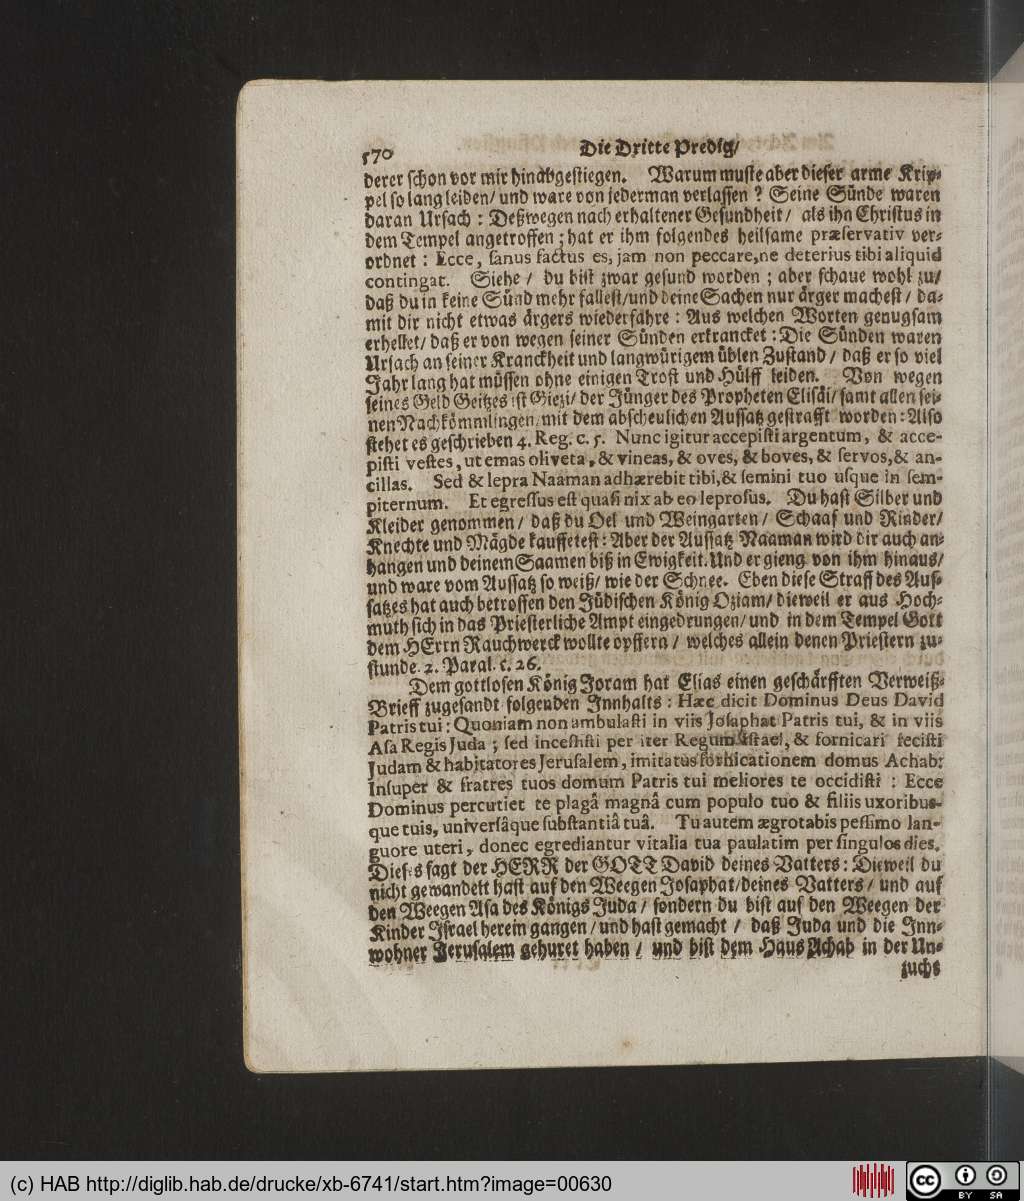 570 Die Dritte Predig/
derer schon vor mir hinabgestiegen. Warum muste aber dieser arme Krip-
pel so lang leiden/ und ware von jederman verlassen ? Seine Sünde waren
daran Ursach : Deßwegen nach erhaltener Gesundheit / als ihn Christus in
dem Tempel angetroffen ; hat er ihm folgendes heilsame præservativ ver-
ordnet : Ecce, sanus factus es, jam non peccare, ne deterius tibi aliquid
contingat. Siehe / du bist zwar gesund worden ; aber schaue wohl zu/
daß du in keine Sünd mehr fallest/und deine Sachen nur ärger machest / da-
mit dir nicht etwas ärgers wiederfahre : Aus welchen Worten genugsam
erhellet/ daß er von wegen seiner Sünden erkrancket : Die Sünden waren
Ursach an seiner Kranckheit und langwürigem üblen Zustand / daß er so viel
Jahr lang hat müssen ohne einigen Trost und Hülff leiden. Von wegen
seines Geld Geitzes ist Giezi/ der Jünger des Propheten Elisäi/ samt allen sei-
nen Nachkömmlingen, mit dem abscheulichen Aussatz gestrafft worden : Also
stehet es geschrieben 4. Reg. c. 5. Nunc igitur accepisti argentum, & acce-
pisti vestes, ut emas oliveta, & vineas, & oves, & boves, & servos, & an-
cillas. Sed & lepra Naaman adhærebit tibi, & semini tuo usque in sem-
piternum. Et egressus est quasi nix ab eo leprosus. Du hast Silber und
Kleider genommen / daß du Oel und Weingarten / Schaaf und Rinder/
Knechte und Mägde kauffetest : Aber der Aussatz Naaman wird dir auch an-
hangen und deinem Saamen biß in Ewigkeit. Und er gieng von ihm hinaus/
und ware vom Aussatz so weiß/ wie der Schnee. Eben diese Straff des Aus-
satzes hat auch betroffen den Jüdischen König Oziam/ dieweil er aus Hoch-
muth sich in das Priesterliche Ampt eingedrungen/ und in dem Tempel Gott
dem HErrn Rauchwerck wollte opffern / welches allein denen Priestern zu-
stunde. 2. Paral. c. 26.
Dem gottlosen König Joram hat Elias einen geschärfften Verweiß-
Brieff zugesandt folgenden Innhalts : Hæc dicit Dominus Deus David
Patris tui : Quoniam non ambulasti in viis Josaphat Patris tui, & in viis
Asa Regis Juda ; sed incessisti per iter Regum Israel, & fornicari fecisti
Judam & habitatores Jerusalem, imitatus fornicationem domus Achab:
Insuper & fratres tuos domum Patris tui meliores te occidisti : Ecce
Dominus percutiet te plagâ magnâ cum populo tuo & filiis uxoribus-
que tuis, universâque substantiâ tuâ. Tu autem ægrotabis pessimo lan-
guore uteri, donec egrediantur vitalia tua paulatim per singulos dies.
Dieses sagt der HERR der GOTT David deines Vatters : Dieweil du
nicht gewandelt hast auf den Weegen Josaphat/deines Vatters / und auf
den Weegen Asa des Königs Juda / sondern du bist auf den Weegen der
Kinder Israel herein gangen / und hast gemacht / daß Juda und die Inn-
wohner Jerusalem gehuret haben / und bist dem Haus Achab in der Un-
zucht
(c) HAB http://diglib.hab.de/drucke/xb-6741/start.htm?image=00630
cc BY SA